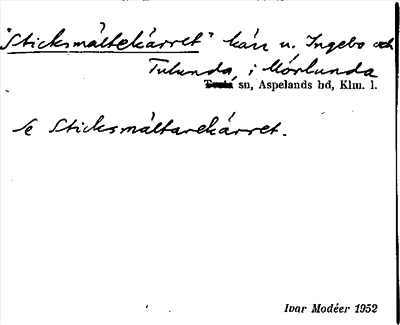 "Sticksmåltekärret" kärr n. Ingebo och
Tulunda, i Mörlunda
sn, Aspelands hd, Klm. l.
Se Sticksmåltarekärret.
Ivar Modéer 1952